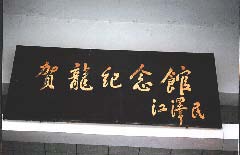 贺龍纪念館
江澤民